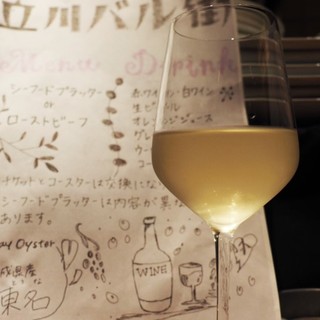 立川バル街
Menu Drink
シーフードプラッター
or
ローストビーフ
赤ワイン・白ワイン
生ビール
オレンジジュース
グレ
ウー
コー
チケットとコースターは交換にな
シーフードプラッターは内容が異な
あります。
Oyster
WINE
城県産
東名